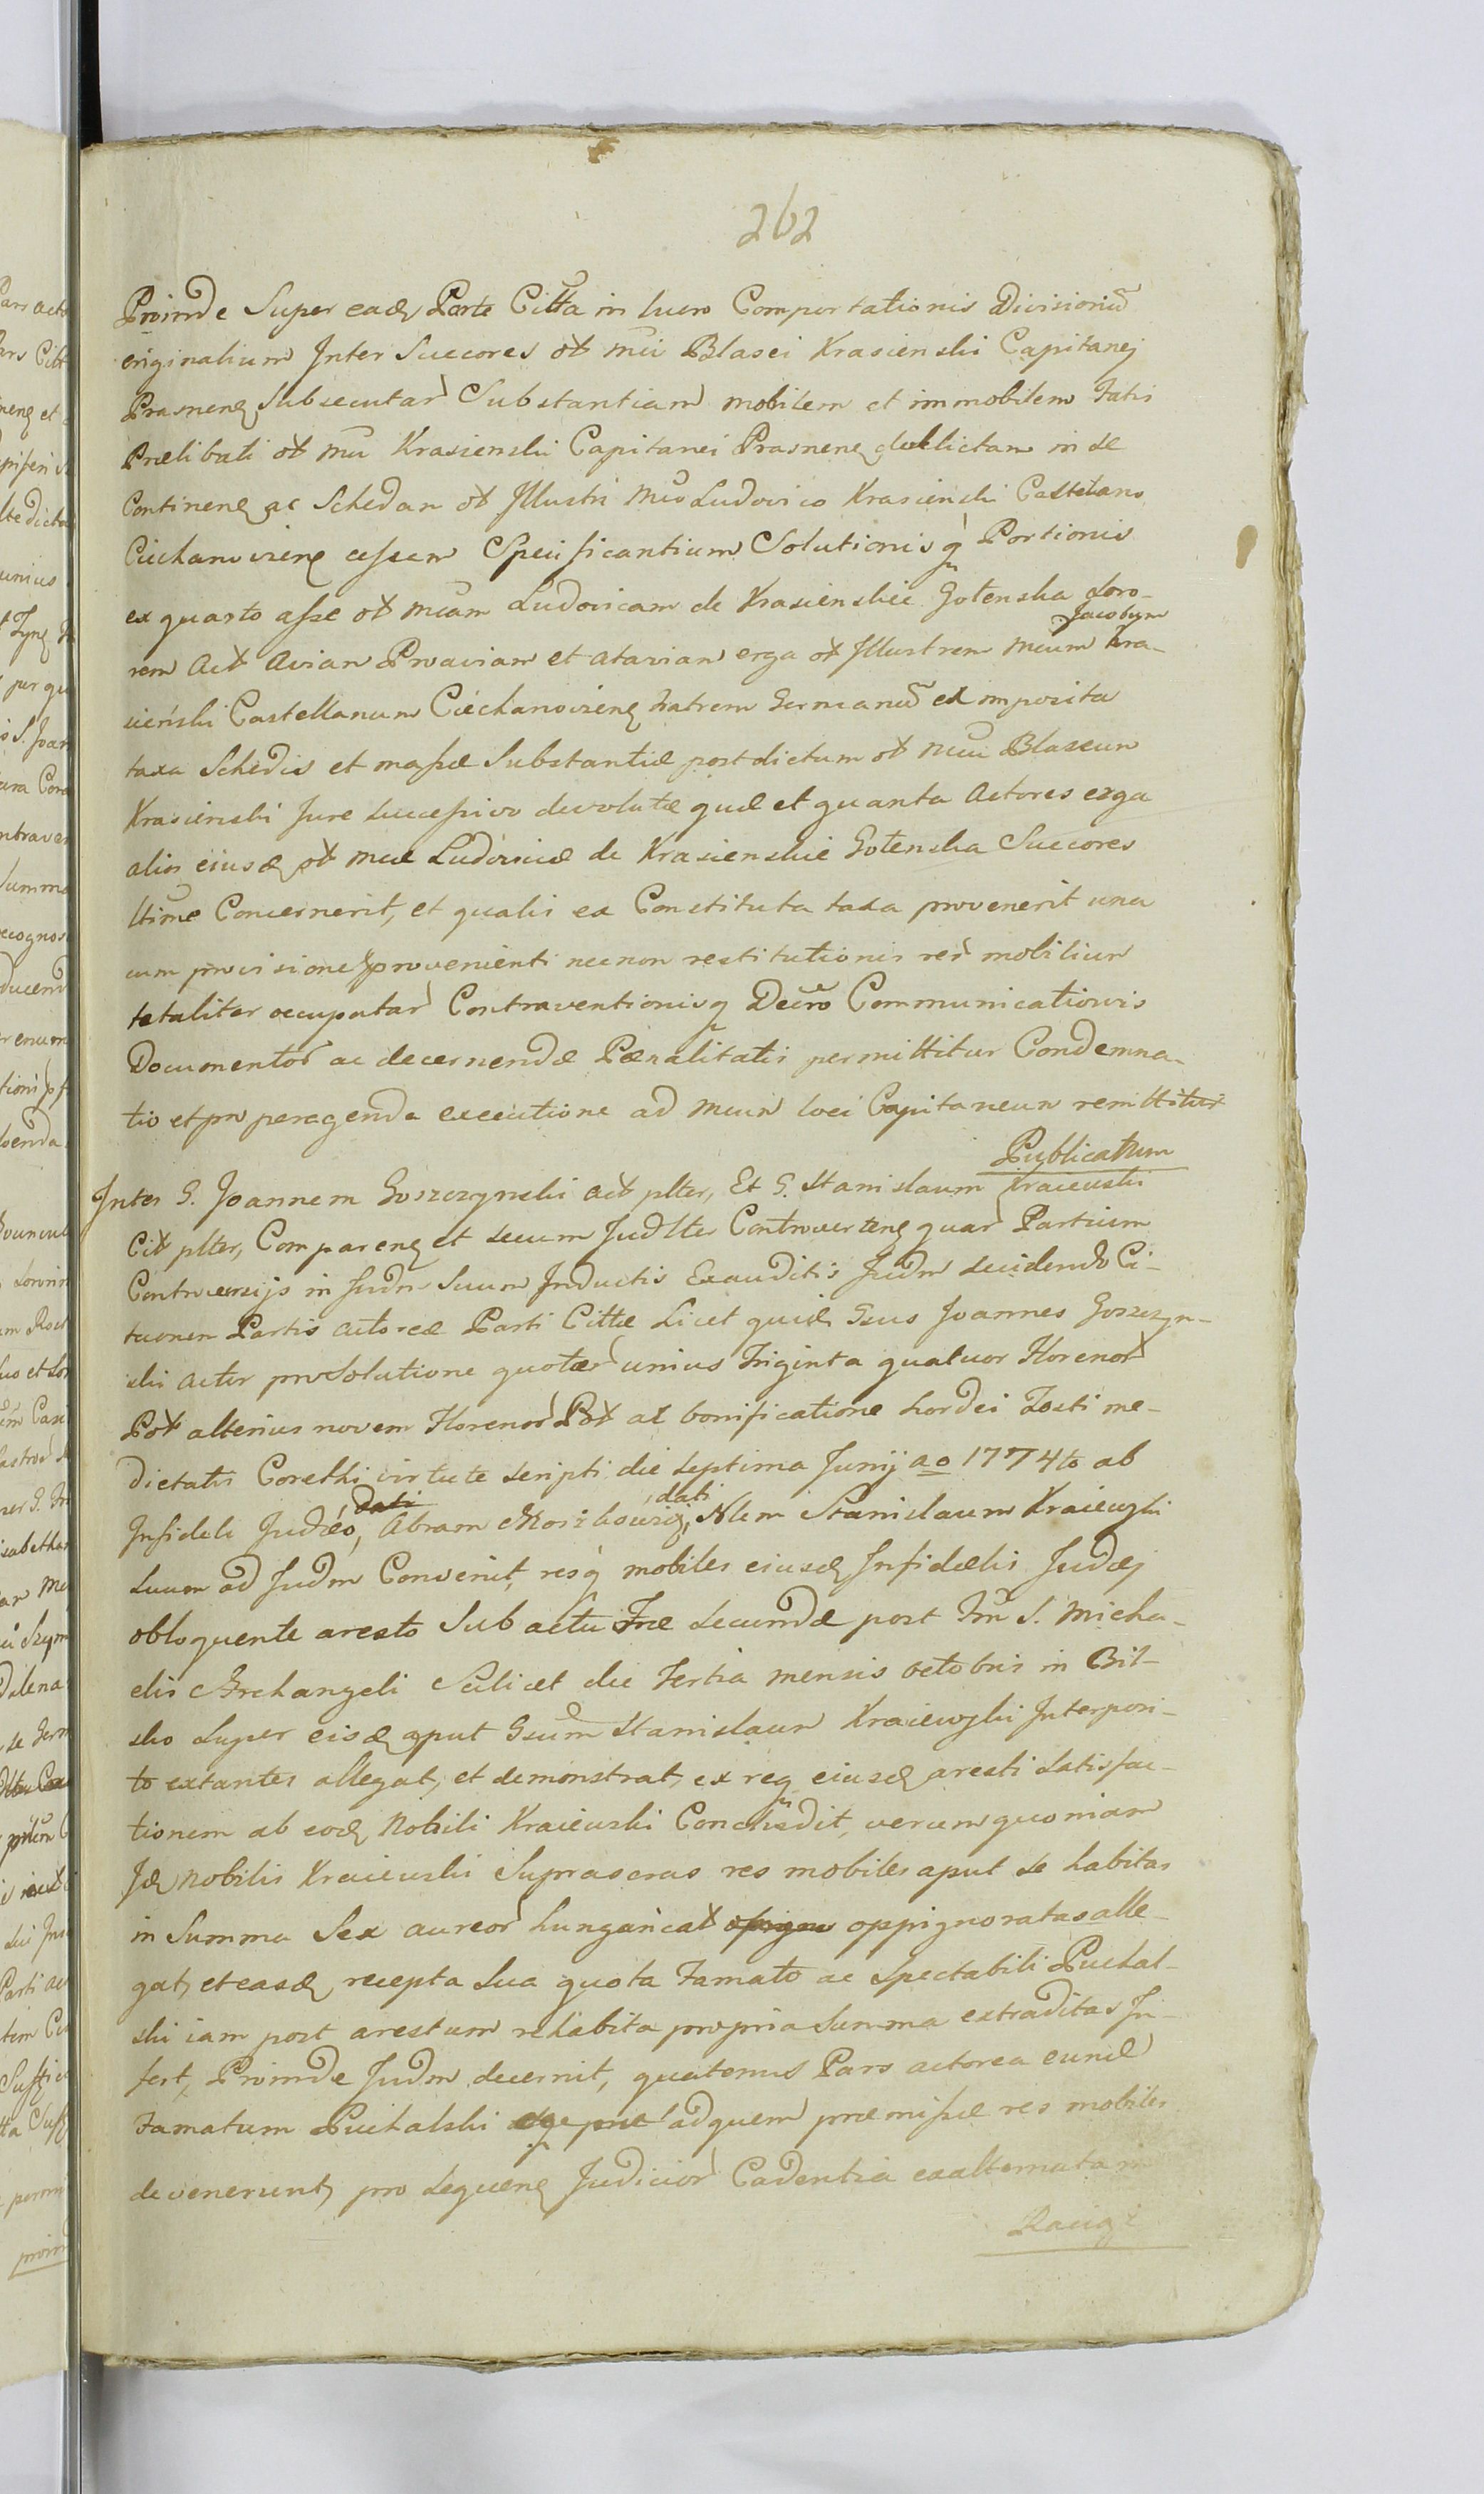 262
Proinde Super eadē Parte Citta in lucro Comportationis Divisioniū
originalium Inter Succores ol̃ mci Blasei Krasienski Capitanej
Prasnenę Subsecutar̃ Substantiam mobilem et immobilem Fatis
Prælibati ol̃ mci Krasienski Capitanei Prasnenę derelictam in se
Continenę ac Schedam ol̃ Jllustri mco Ludovico Krasienski Castelano
Ciechanovienę cessam Specificantium Solutionisq̀ Portionis
ex quarto asse ol̃ mcam Ludovicam de Krasienskie Gotenska Soro-
rem Act̃ Aviam Proaviam et Ataviam erga ol̃ Jllustrem mcum Jacobum Kra-
sieński Castellanum Ciéchanovienę Fratrem Germanū ex imposita
taxa Schedis et massæ Substantiæ post dictum ol̃ mcũ Blaseum
Krasienski Jure Successivo devolutæ quæ et quanta Actores erga
alios eiusdē ol̃ mcæ Ludovicæ de Krasienskie Gotenska Succores
lt̃ime Concernerit, et qualis ex Constituta taxa provenerit una
cum provisione provenienti necnon restitutionis rer̃ mobilium
totaliter occupatar̃ Contraventionisq̀ Decr̃o Communicationis
Documentor̃ ac decernendæ Pænalitatis permittitur Condemna-
tio et pro peragenda executione ad mcum loci Capitaneum remittitur
Publicatum
Inter G. Joannem Goszczynski act̃ plter, Et G. Stanislaum Kraiewski
Cit̃ plter, Comparenę et secum Judlter Controvertenę quar̃ Partium
Controversijs in Judm Suum Inductis Exauditis Judm decidendo Ci-
taonem Partis actoreæ Parti Cittæ Licet quidē Gsus Joannes Goszczyn-
ski Actor pro Solutione quotar̃ unius Triginta quatuor Florenor̃
Pol̃ alterius novem Florenor̃ Pol̃ ac bonificatione hordei Tosti me-
dietatis Corethi virtute scripti die septima Junij ao 1774to ab
Infideli Judæo, Abram dati Nlem Stanislaum Kraiewski
Suum ad Judm Convenit, resq̀ mobiles eiusdē Infidelis Judæj
obloquente aresto Sub actu Fræ Secundæ post Fm̃ S. Micha-
elis Archangeli Scilicet die Tertia mensis octobris in Biel-
sko Super eisdē aput Gsum Stanislaum Kraiewski Interposi-
to extantes allegat, et demonstrat, ex req̀ eiusdē aresti Satisfac-
tionem ab eodē Nobili Kraiewski Concludit, verum quoniam
Jdē Nobilis Kraiewski Supra scras res mobiles aput se habitas
in Summa Sex aureor̃ hungarical̃ oppignoratas alle-
gat, et easdē, recepta Sua quota Famato ac Spectabili Puchal-
ski iam post arestum rehabita propria Summa extraditas In-
fert, Proinde Judm decernit, quatenus Pars actorea eundē
Famatum Puchalski ad quem præmissæ res mobiles
devenerunt, pro Sequenę Judicior̃ Cadentia exalternatam